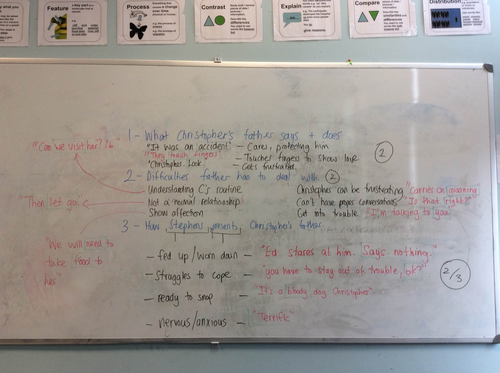 Feature
Process
Contrast
Explain
Compare
Distribution
1 - What Christopher's father says + does
"It was an accident" - Cares, protecting him
"They touch fingers" - Touches fingers to show love
"Christopher. Look. - Gets frustrated
2
"Can we visit her?" "No"
2 - Difficulties father has to deal with 2
Understanding C's routine
Christopher can be frustrating "Carries on groaning"
Then let go
Not a normal relationship
Can't have proper conversations "Is that right?"
Show affection
Get into trouble "I'm talking to you"
3 - How Stephens presents Christopher's father
"We will need to take food to her"
- fed up/worn down - "Ed stares at him. Says nothing."
- Struggles to cope - "you have to stay out of trouble, ok?"
2/3
- ready to snap - It's a bloody dog Christopher"
- nervous/anxious - "Terrific"